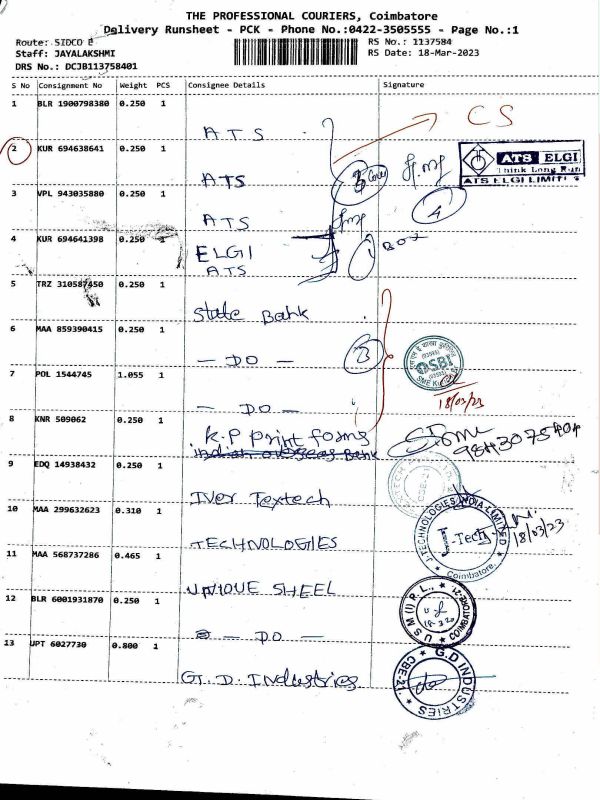 THE PROFESSIONAL COURIERS, Coimbatore
Delivery Runsheet - PCK - Phone No.:0422-3505555 - Page No.:1
Route: SIDCO E
Staff: JAYALAKSHMI
DRS No.: DCJB113758401
RS No.: 1137584
RS Date: 18-Mar-2023
S No Consignment No Weight PCS Consignee Details Signature
1 BLR 1900798380 0.250 1
ATS
CS
2 KUR 694638641 0.250 1
ATS
ATS ELGI
Think Long Run
ATS ELGI LIMITED
3 VPL 943035880 0.250 1
ATS
4
4 KUR 694641398 0.250 1
ELGI
ATS
1 BOX
5 TRZ 310587450 0.250 1
State Bank
6 MAA 859390415 0.250 1
- DO -
3
SBI
7 POL 1544745 1.055 1
- DO -
18/03/23
8 KNR 509062 0.250 1
K.P print forms
indian overseas Bank
9 EDQ 14938432 0.250 1
Iver Textech
10 MAA 299632623 0.310 1
TECHNOLOGIES
J.TECHNOLOGIES INDIA LIMITED
J-Tech
Coimbatore.
18/03/23
11 MAA 568737286 0.465 1
UNIQUE SHEEL
12 BLR 6001931870 0.250 1
- DO -
U S M (I) P. L.,
COIMBATORE
13 JPT 6027730 0.800 1
G. D. Industries
G.D INDUSTRIES
CBE-21.